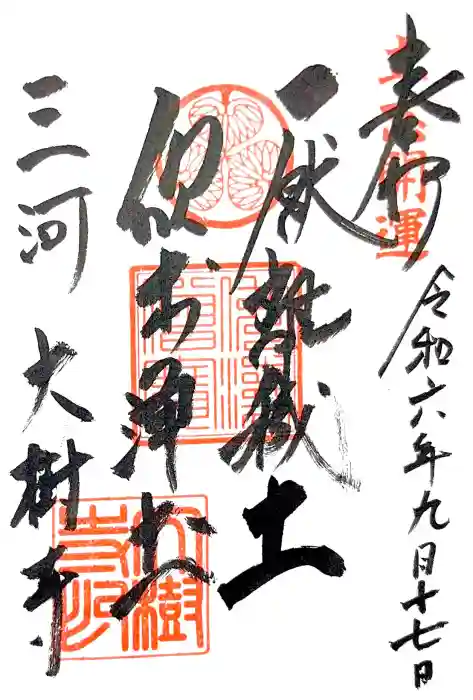 奉拝
令和六年九月十七日
厭離穢土
欣求浄土
三河 大樹寺